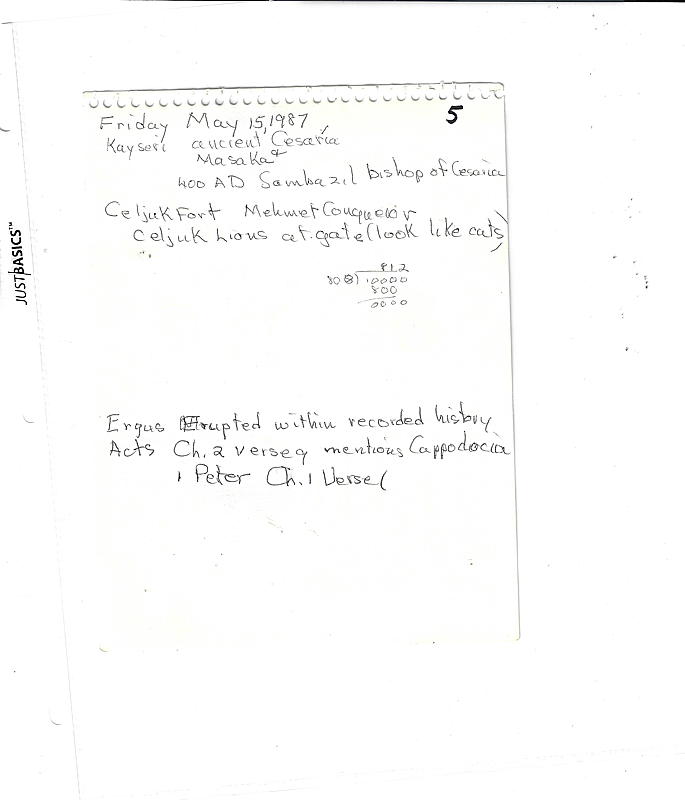 5
Friday May 15, 1987
Kayseri ancient Cesaria
Masaka
400 AD Sambazil bishop of Cesarica
Celjuk Fort Mehmet Conqueror
Celjuk Lions at gate (look like cats)
812
808) 10000
800
0000
Ergus Errupted within recorded history
Acts Ch. 2 verse 9 mentions Cappodocia
1 Peter Ch. 1 Verse (
JUST|BASICS™